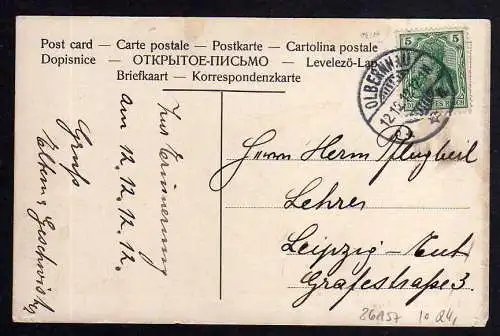 Post card – Carte postale – Postkarte – Cartolina postale
Dopisnice – ОТКРЫТОЕ-ПИСЬМО – Levelező-Lap
Briefkaart – Korrespondenzkarte
5 5
OLBERNHAU
12.12.12
Zur Erinnerung
am 12. 12. 12. 12.
Gruß
Eltern u. Geschwister
Herrn Herm Pflugbeil
Lehrer
Leipzig-Eut
Gräfestraße 3.
86A57 10